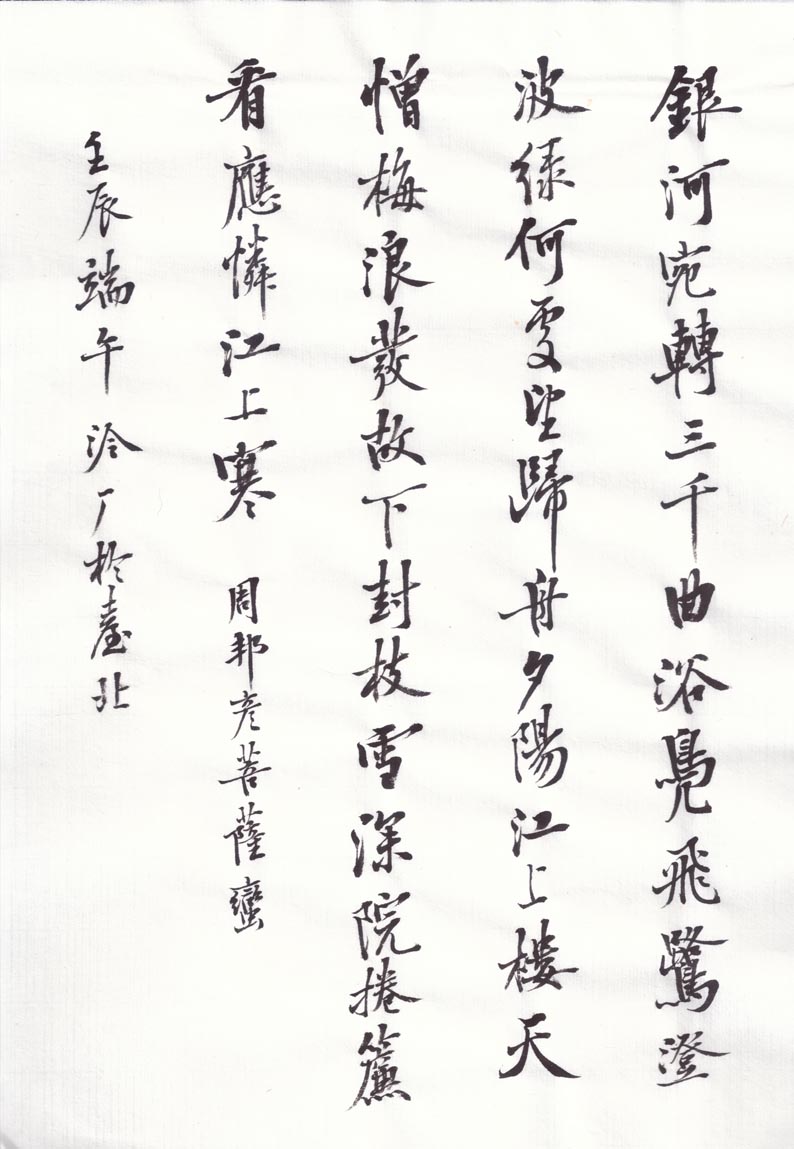 銀河宛轉三千曲浴鳧飛鷺澄
波綠何處望歸舟夕陽江上樓天
憎梅浪發故下封枝雪深院捲簾
看應憐江上寒 周邦彥菩薩蠻
壬辰端午 泠厂於臺北